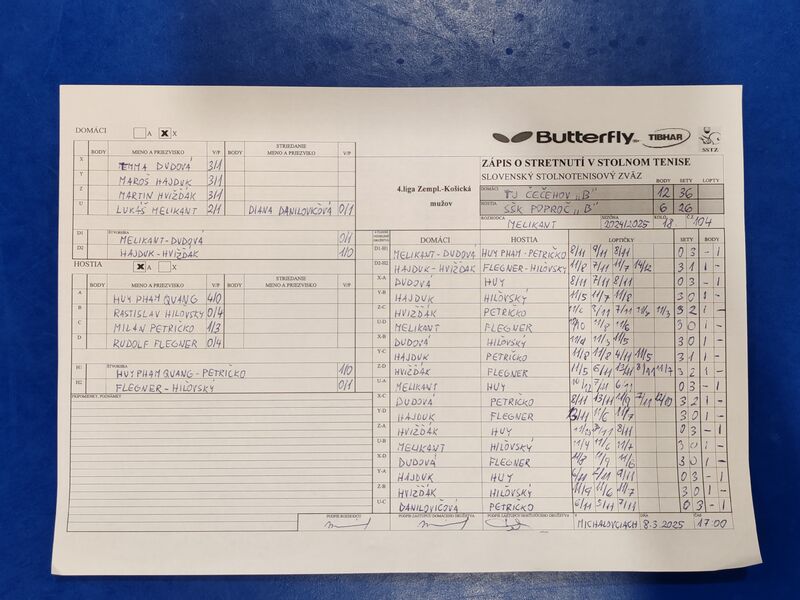 DOMÁCI A X X
BODY MENO A PRIEZVISKO V/P BODY STRIEDANIE MENO A PRIEZVISKO V/P
X EMMA DUDOVÁ 3/1
Y MAROŠ HAJDUK 3/1
Z MARTIN HVIŽĎÁK 3/1
U LUKÁŠ MELIKANT 2/1 DIANA DANILOVIČOVÁ 0/1
D1 ŠTVORHRA MELIKANT-DUDOVÁ 0/1
D2 HAJDUK-HVIŽĎÁK 1/0
HOSTIA X A X
BODY MENO A PRIEZVISKO V/P BODY STRIEDANIE MENO A PRIEZVISKO V/P
A HUY PHAM QUANG 4/0
B RASTISLAV HILOVSKÝ 0/4
C MILAN PETRIČKO 1/3
D RUDOLF FLEGNER 0/4
H1 ŠTVORHRA HUY PHAM QUANG-PETRIČKO 1/0
H2 FLEGNER-HIĽOVSKÝ 0/1
PRIPOMIENKY, POZNÁMKY
Butterfly TIBHAR SSTZ
ZÁPIS O STRETNUTÍ V STOLNOM TENISE
SLOVENSKÝ STOLNOTENISOVÝ ZVÄZ
4.liga Zempl.-Košická
mužov
BODY SETY LOPTY
DOMÁCI TJ ČEČEHOV „B" 12 36
HOSTIA SŠK POPROČ „B" 6 26
ROZHODCA MELIKANT SEZÓNA 2024/2025 KOLO 18 Č.S. 104
DOMÁCI HOSTIA LOPTIČKY SETY BODY
D1-H1 MELIKANT-DUDOVÁ HUY PHAM-PETRIČKO 8/11 9/11 8/11 0 3 - 1
D2-H2 HAJDUK-HVIŽĎÁK FLEGNER-HIĽOVSKÝ 11/8 7/11 11/7 14/12 3 1 1 -
X-A DUDOVÁ HUY 8/11 7/11 8/11 0 3 - 1
Y-B HAJDUK HIĽOVSKÝ 11/5 11/7 11/8 3 0 1 -
Z-C HVIŽĎÁK PETRIČKO 3/11 7/11 11/3 3 2 1 -
U-D MELIKANT FLEGNER 11/8 11/6 3 0 1 -
X-B DUDOVÁ HIĽOVSKÝ 11/4 11/3 11/5 3 0 1 -
Y-C HAJDUK PETRIČKO 11/8 11/8 4/11 11/5 3 1 1 -
Z-D HVIŽĎÁK FLEGNER 11/5 6/11 13/11 8/11 11/7 3 2 1 -
U-A MELIKANT HUY 10/12 7/11 6/11 0 3 - 1
X-C DUDOVÁ PETRIČKO 8/11 13/11 11/9 7/11 12/10 3 2 1 -
Y-D HAJDUK FLEGNER 11/6 11/7 3 0 1 -
Z-A HVIŽĎÁK HUY 8/11 0 3 - 1
U-B MELIKANT HIĽOVSKÝ 11/4 11/6 11/7 3 0 1 -
X-D DUDOVÁ FLEGNER 11/8 11/9 11/6 3 0 1 -
Y-A HAJDUK HUY 6/11 2/11 9/11 0 3 - 1
Z-B HVIŽĎÁK HIĽOVSKÝ 11/9 11/6 11/7 3 0 1 -
U-C DANILOVIČOVÁ PETRIČKO 6/11 3/11 7/11 0 3 - 1
PODPIS ROZHODCU PODPIS ZÁSTUPCU DOMÁCEHO DRUŽSTVA PODPIS ZÁSTUPCU HOSŤUJÚCEHO DRUŽSTVA V MICHALOVCIACH DŇA 8.3.2025 ČAS 17:00